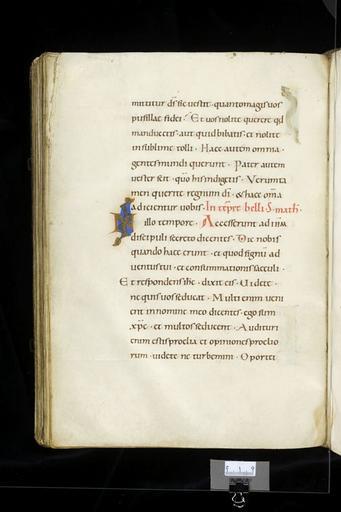 mittitur dſ ſic ueſtit · quantomagiſ uoſ
puſillae fidei · Et uoſ nolite querere qd
manducetiſ · aut quid bibatiſ · et nolite
inſublime tolli · Haec autem omnia
genteſ mundi querunt · Pater autem
ueſter ſcit · quo hiſ indigetiſ · Verumta
men querite regnum di · & haec oma
adicientur uobiſ · In tēpre belli S. math.
illo tempore · Acceſſerunt ad ihm
diſcipuli ſecreto dicenteſ · Dic nobiſ
quando haec erunt · et quod ſignū ad
uentuſ tui · et conſummationiſ ſaeculi ·
Et reſpondenſ ihc · dixit eiſ · Videte ·
ne quiſ uoſ ſeducat · Multi enim ueni
ent in nomine meo dicenteſ · ego ſum
xpc · et multoſ ſeducent · Audituri
enim eſtiſ proelia · et opinioneſ proelio
rum · uidete ne turbemini · Oportet